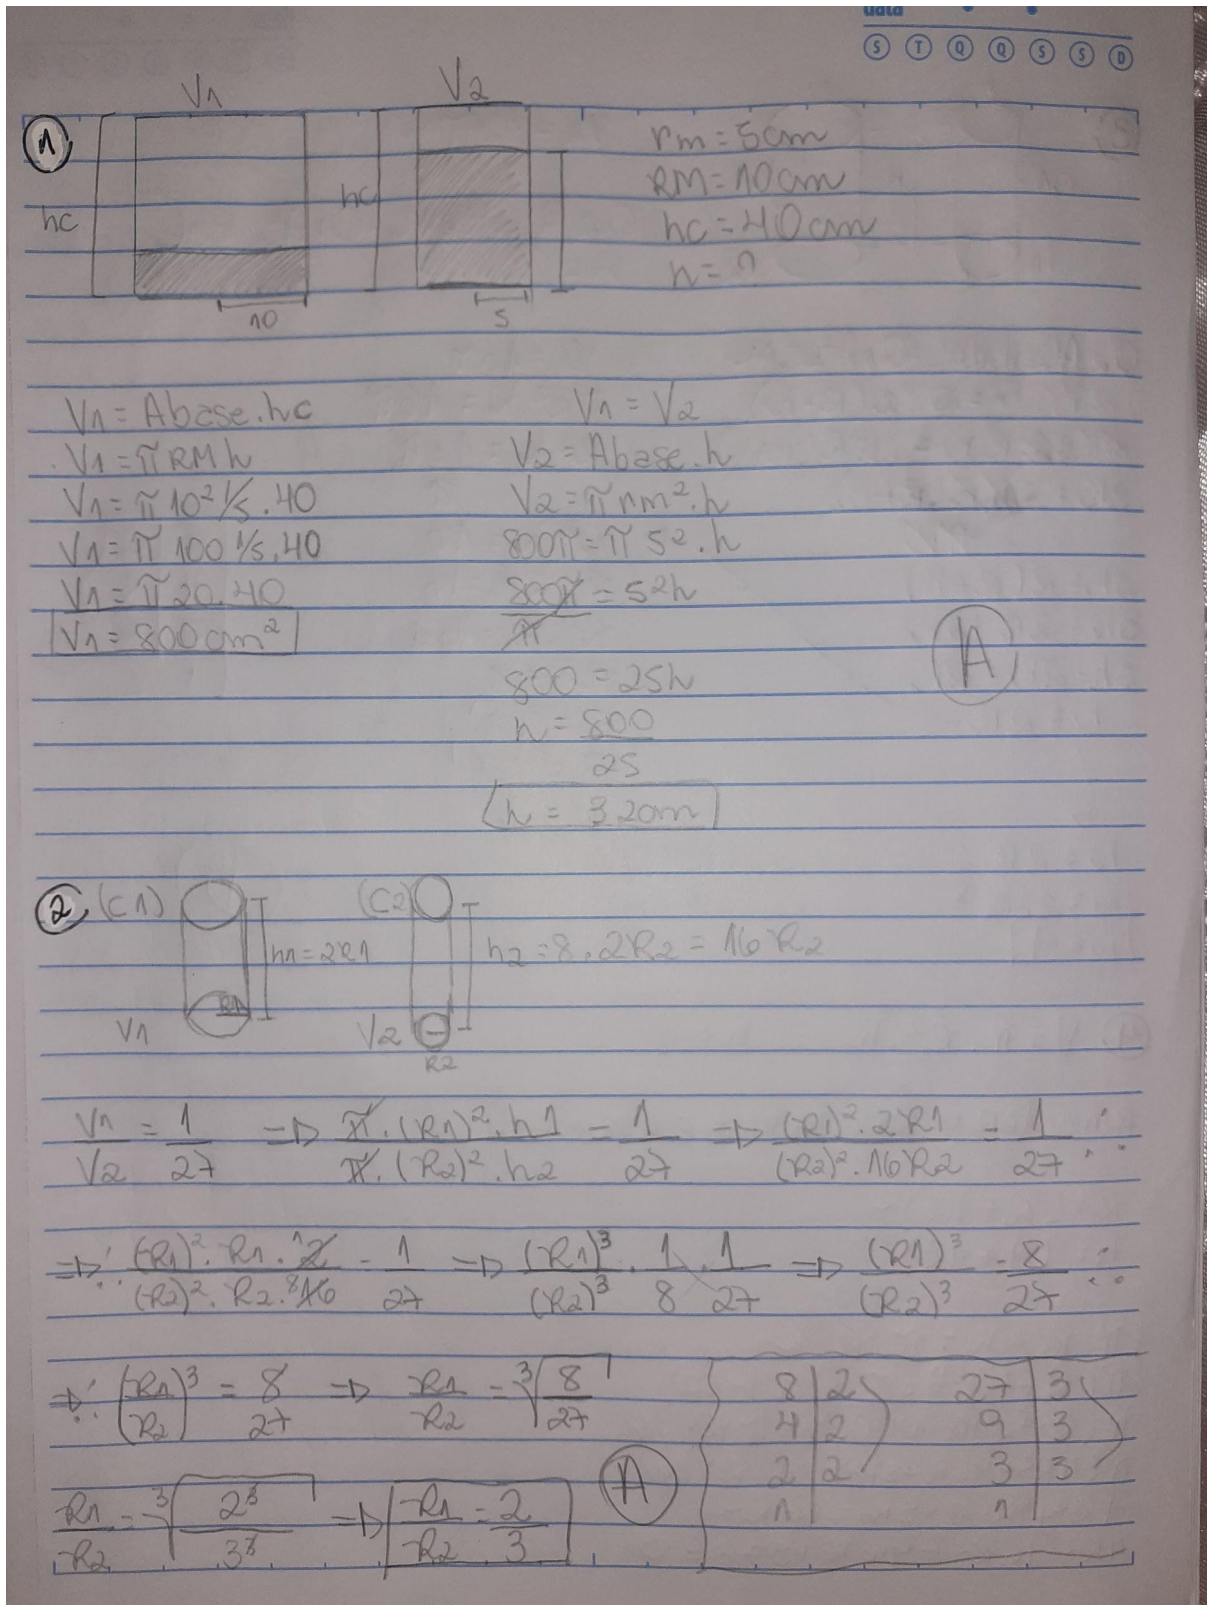 data
S T Q Q S S D
V1 V2
1
hc hc
10 5
rm = 5cm
RM = 10cm
hc = 40cm
h = ?
V1 = Abase.hc
V1 = π RM h
V1 = π 10² 1/5 . 40
V1 = π 100 1/5 . 40
V1 = π 20.40
V1 = 800cm²
V1 = V2
V2 = Abase.h
V2 = π rm².h
800π = π 5².h
800π/π = 5²h
800 = 25h
h = 800/25
h = 320m
A
2 (C1) (C2)
h1 = 2R1 h2 = 8.2R2 = 16R2
R1
V1 V2
R2
V1/V2 = 1/27 ⇒ π.(R1)².h1/π.(R2)².h2 = 1/27 ⇒ (R1)².2R1/(R2)².16R2 = 1/27 ∴
⇒∴ (R1)².R1.¹2/(R2)².R2.⁸16 = 1/27 ⇒ (R1)³/(R2)³ . 1/8 . 1/27 ⇒ (R1)³/(R2)³ = 8/27 ∴
⇒∴ (R1/R2)³ = 8/27 ⇒ R1/R2 = ³√8/27
8 | 2 27 | 3
4 | 2 9 | 3
2 | 2 3 | 3
1 | 1 |
R1/R2 = ³√2³/3³ ⇒ R1/R2 = 2/3
A